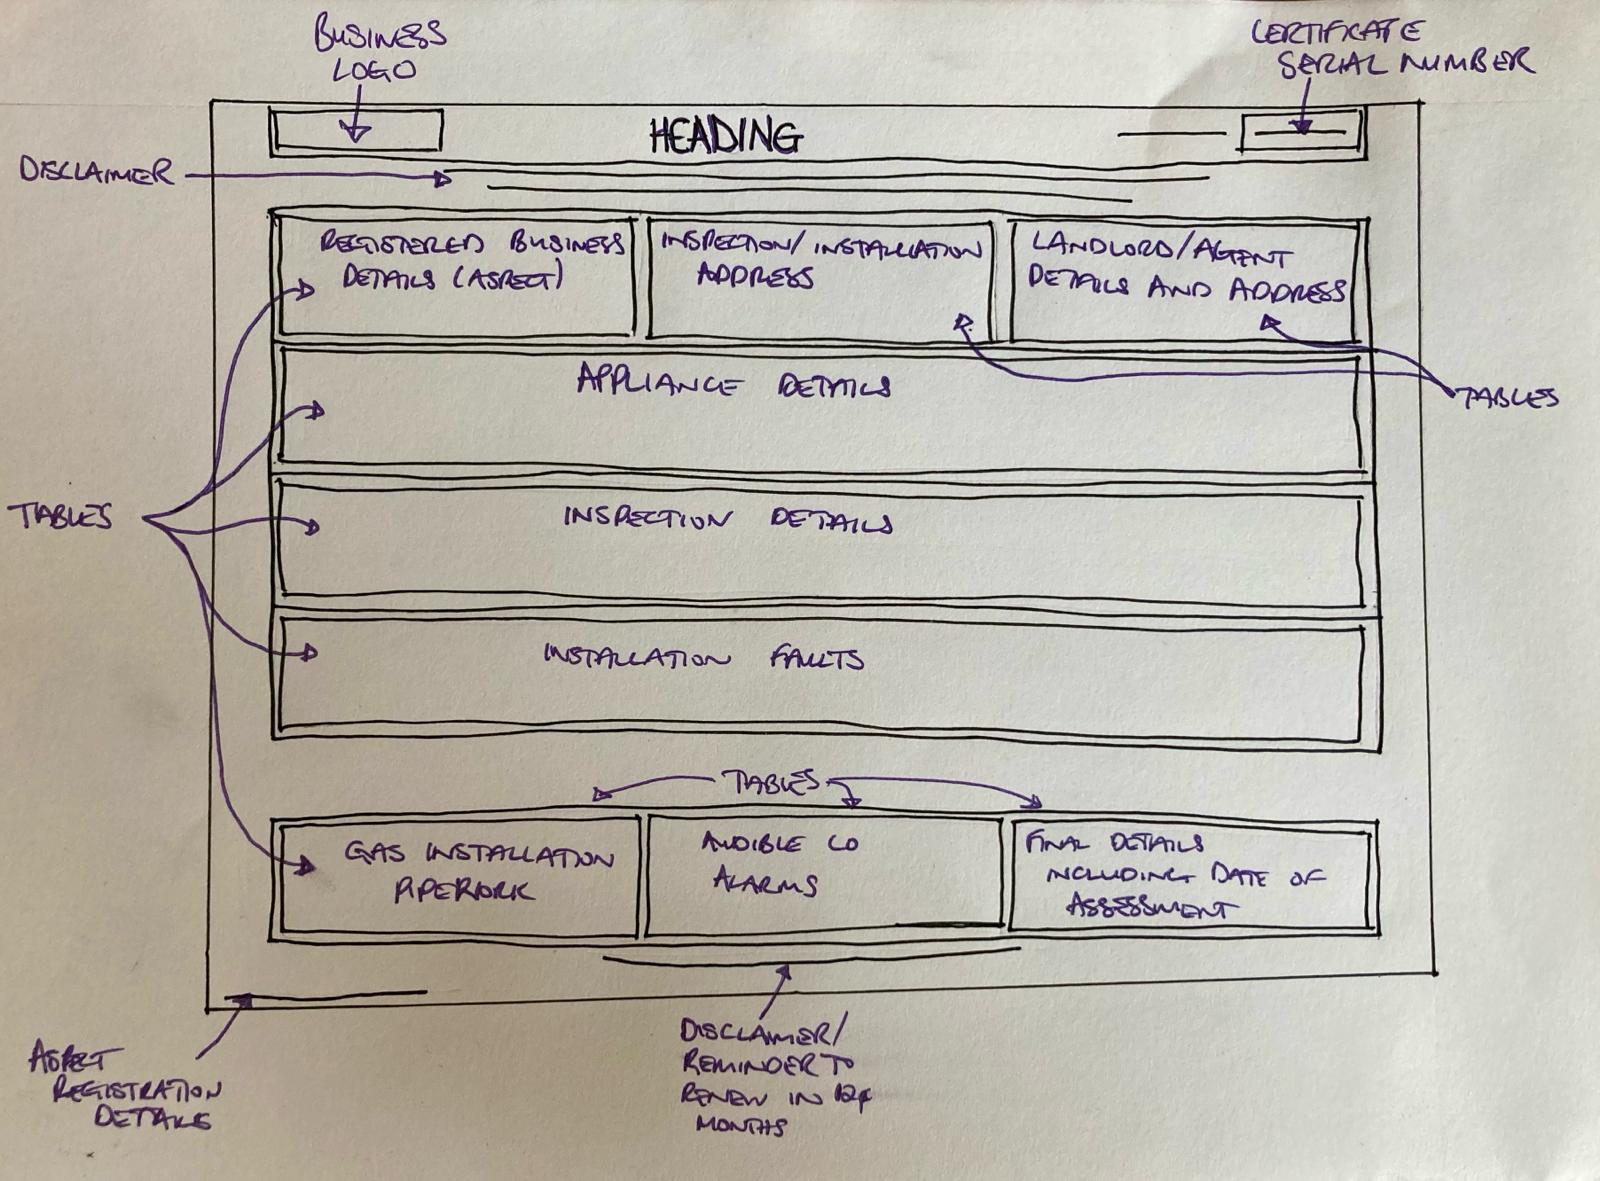 BUSINESS
LOGO
CERTIFICATE
SERIAL NUMBER
HEADING
DISCLAIMER
REGISTERED BUSINESS
DETAILS (ASPECT)
INSPECTION/INSTALLATION
ADDRESS
LANDLORD/AGENT
DETAILS AND ADDRESS
APPLIANCE DETAILS
TABLES
TABLES
INSPECTION DETAILS
INSTALLATION FAULTS
TABLES
GAS INSTALLATION
PIPEWORK
AUDIBLE CO
ALARMS
FINAL DETAILS
INCLUDING DATE OF
ASSESSMENT
ASPECT
REGISTRATION
DETAILS
DISCLAIMER/
REMINDER TO
RENEW IN
MONTHS